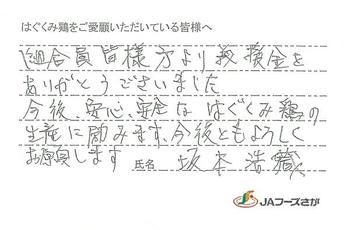 はぐくみ鶏をご愛顧いただいている皆様へ
組合員皆様方より義援金を
ありがとうございました
今後、安心、安全な はぐくみ鶏の
生産に励みます、今後ともよろしく
お願いします 氏名 坂本浩
JAフーズさが